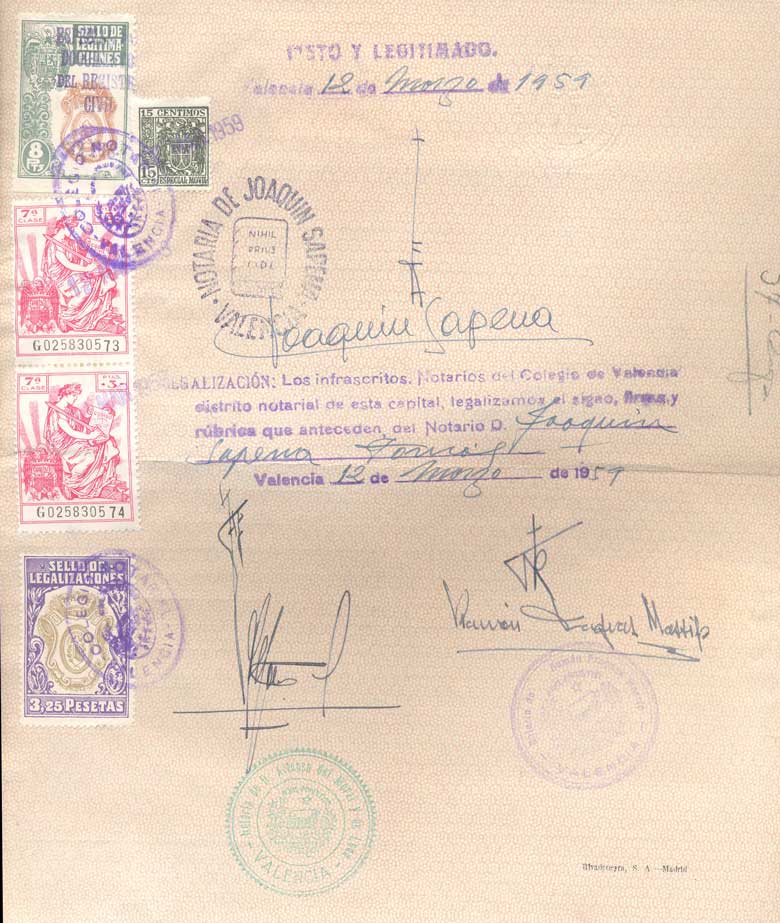 SELLO DE
LEGITIMA-
CIONES
DEL REGISTR
CIVIL
8 Pts
VISTO Y LEGITIMADO.
Valencia 12 de Marzo de 1959
15 CENTIMOS
15 CTS
ESPECIAL MOVIL
1959
NOTARIAL
COLEGIO
VALENCIA
NOTARIA DE JOAQUIN SAPENA
VALENCIA
NIHIL
PRIUS
FIDE
7ª
CLASE
G025830573
Joaquín Sapena
7ª
CLASE
PTAS
-3-
G025830574
LEGALIZACIÓN: Los infrascritos, Notarios del Colegio de Valencia
distrito notarial de esta capital, legalizamos el signo, firma y
rúbrica que anteceden, del Notario D. Joaquín
Sapena Tomás
Valencia 12 de Marzo de 1959
SELLO DE
LEGALIZACIONES
3,25 PESETAS
NOTARIAL
COLEGIO
VALENCIA
Ramón
Notaría de
VALENCIA
Notaría de D. Alfonso del Moral y de Luna
VALENCIA
Rivadeneyra, S. A.—Madrid